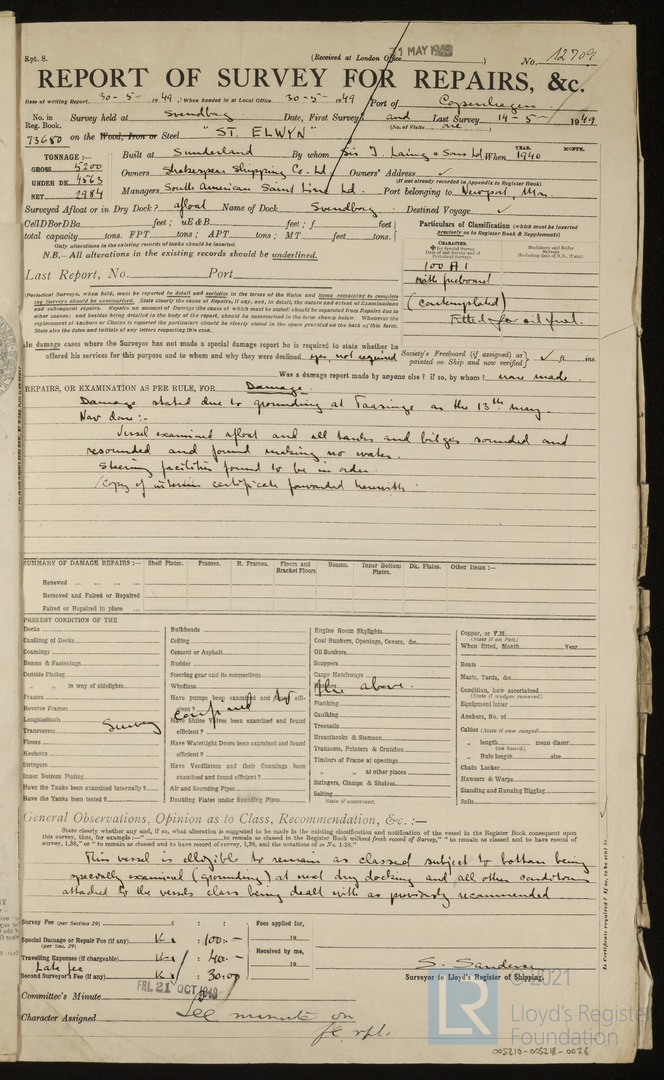 Rpt. 8.
(Received at London Office 31 MAY 1949 )
No. 12709
REPORT OF SURVEY FOR REPAIRS, &c.
Date of writing Report 30-5- 1949 When handed in at Local Office 30-5- 1949 Port of Copenhagen
No. in Reg. Book. Survey held at Svendborg Date, First Survey and Last Survey 14-5- 1949
(No. of Visits one )
73680 on the Wood, Iron or Steel "ST. ELWYN"
TONNAGE:—
GROSS 5200
UNDER DK. 4563
NET 2984
Built at Sunderland By whom Sir J. Laing & Sons Ld. When YEAR. 1940 MONTH.
Owners Shakespear Shipping Co. Ld. Owners' Address ✓
(If not already recorded in Appendix to Register Book)
Managers South American Saint Line Ld. Port belonging to Newport, Mn.
Surveyed Afloat or in Dry Dock? afloat Name of Dock Svendborg Destined Voyage ✓
Cell D Bor D Ba feet; uE & B feet; f feet
total capacity tons. FPT tons; APT tons; MT feet tons.
Only alterations in the existing records of tanks should be inserted.
N.B.—All alterations in the existing records should be underlined.
Last Report, No. Port
Particulars of Classification (which must be inserted precisely as in Register Book & Supplements)
CHARACTER.
Date of last Survey and of Periodical Surveys.
Machinery and Boiler Surveys (including date of N.B., if any).
100 A1
with freeboard
(contemplated)
Fitted for oil fuel.
(Periodical Surveys, when held, must be reported in detail and seriatim in the terms of the Rules and items remaining to complete
the Surveys should be summarised. State clearly the cause of Repairs, if any, and, in detail, the nature and extent of Examinations
and subsequent repairs. Repairs on account of Damage (the cause of which must be stated) should be separated from Repairs due to
other causes: and besides being detailed in the body of the Report, should be summarised in the form shown below. Whenever the
replacement of Anchors or Chains is reported the particulars should be clearly stated in the space provided on the back of this form.
State also the dates and initials of any letters respecting this case.
In damage cases where the Surveyor has not made a special damage report he is required to state whether he
offered his services for this purpose and to whom and why they were declined yes, not required
Society's Freeboard (if assigned) as painted on Ship and now verified ✓ ft. ins.
Was a damage report made by anyone else? if so, by whom? none made.
REPAIRS, OR EXAMINATION AS PER RULE, FOR Damage.
Damage stated due to grounding at Taasinge on the 13th May.
Now done:-
Vessel examined afloat and all tanks and bilges sounded and
resounded and found making no water.
Steering facilities found to be in order.
Copy of interim certificate forwarded herewith.
SUMMARY OF DAMAGE REPAIRS:— Shell Plates. Frames. R. Frames. Floors and Bracket Floors Beams. Inner Bottom Plates. Dk. Plates. Other Items:—
Renewed
Removed and Faired or Repaired
Faired or Repaired in place
PRESENT CONDITION OF THE
Decks
Caulking of Decks
Coamings
Beams & Fastenings
Outside Plating
" " in way of sidelights
Frames
Reverse Frames
Longitudinals
Transverses
Floors
Keelsons
Stringers
Inner Bottom Plating
Have the Tanks been examined internally?
Have the Tanks been tested?
Bulkheads
Ceiling
Cement or Asphalt
Rudder
Steering gear and its connections
Windlass
Have pumps been examined and found efficient?
Have Sluice Valves been examined and found efficient?
Have Watertight Doors been examined and found efficient?
Have Ventilators and their Coamings been examined and found efficient?
Air and Sounding Pipes
Doubling Plates under Sounding Pipes
Engine Room Skylights
Coal Bunkers, Openings, Covers, &c.
Oil Bunkers
Scuppers
Cargo Hatchways
Hatches
Planking
Caulking
Treenails
Breasthooks & Stemson
Transoms, Pointers & Crutches
Timbers of Frame at openings
" " at other places
Stringers, Clamps & Shelves
Salting
State if examined.
Copper, or Y.M.
(State if on Felt.)
When fitted, Month Year
Boats
Masts, Yards, &c.
Condition, how ascertained
(State if wedges removed.)
Equipment letter
Anchors, No. of
Cables (State if now ranged)
" length mean diamr.
(on board.)
" Rule length size
Chain Locker
Hawsers & Warps
Standing and Running Rigging
Sails
Survey confined to the above.
General Observations, Opinion as to Class, Recommendation, &c.:—
State clearly whether any, and if so, what alteration is suggested to be made in the existing classification and notification of the vessel in the Register Book consequent upon
this survey, thus, for example:—" to remain as classed in the Register Book without fresh record of Survey," " to remain as classed and to have record of
survey, 1,38," or " to remain as classed and to have record of survey, 1,38, and the notations of ss No. 1-38."
This vessel is elligible to remain as classed subject to bottom being
specially examined (grounding) at next dry docking and all other conditions
attached to the vessels class being dealt with as previously recommended
Survey Fee (per Section 29)
Special Damage or Repair Fee (if any) (per Sec. 29) Kr. : 100:-
Travelling Expenses (if chargeable) Kr. : 40:-
Late fee
Second Surveyor's Fee (if any) Kr. : 30:00
Fees applied for,
19
Received by me,
19
S. Sanders
Surveyor to Lloyd's Register of Shipping.
Committee's Minute FRI. 21 OCT 1949
Character Assigned See minute on
fe rpt.
Is Certificate required? if so, to be sent to
© 2021
LR
Lloyd's Register
Foundation
005210-005218-0026